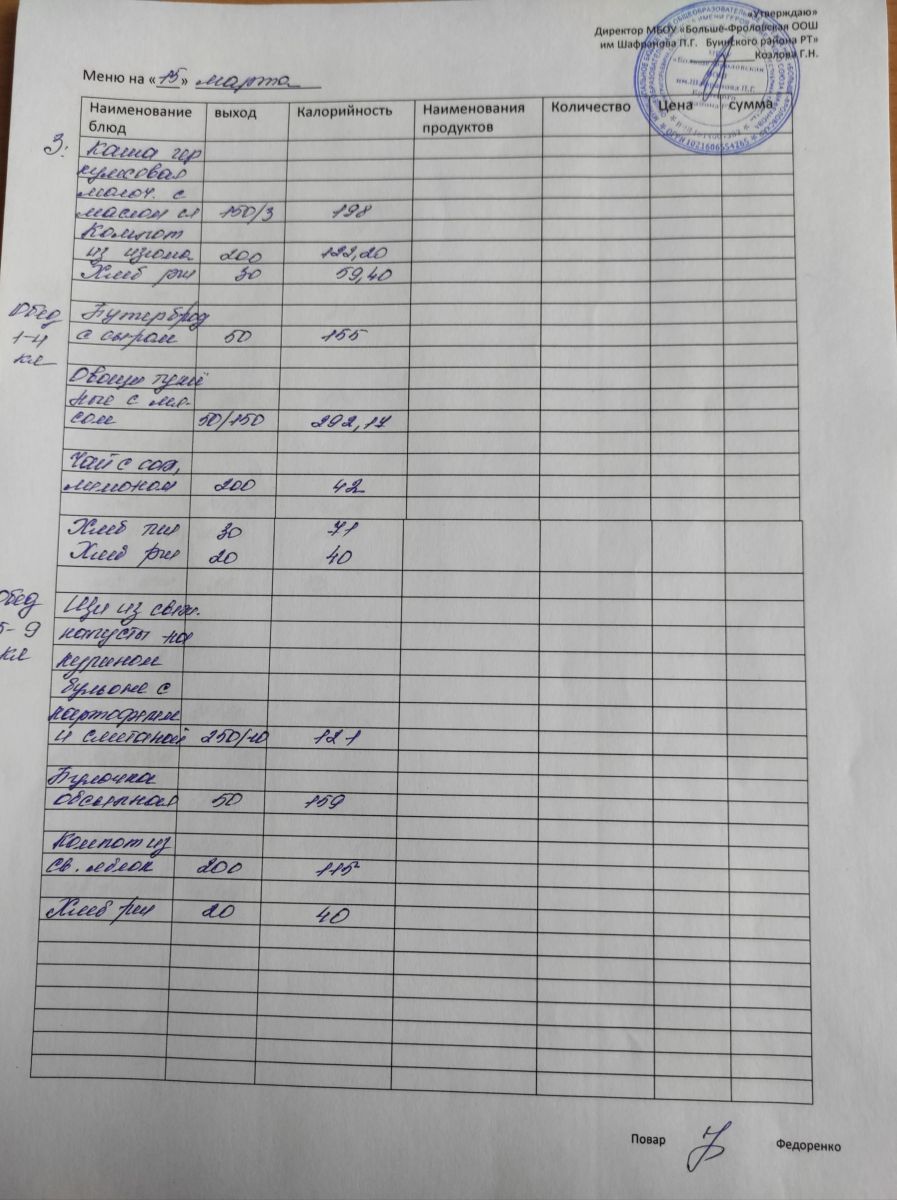 «Утверждаю»
Директор МБОУ «Больше-Фроловская ООШ
им Шафранова П.Г. Буинского района РТ»
Козлова Г.Н.
Меню на «15» марта
Наименование блюд выход Калорийность Наименования продуктов Количество Цена сумма
З: Каша гер
кулесовая
молоч. с
маслом сл 150/3 198
Компот
из изюма 200 122,20
Хлеб рж 30 59,40
Обед Бутерброд
1-4 с сыром 50 155
кл
Овощи тушё
ные с мя-
сом 50/150 292,17
Чай с сах,
лимоном 200 42
Хлеб пш 30 71
Хлеб рж 20 40
Обед Щи из свеж.
5-9 капусты на
кл курином
бульоне с
картофелем
и сметаной 250/10 121
Булочка
обсыпная 50 159
Компот из
св. яблок 200 115
Хлеб рж 20 40
Повар Федоренко